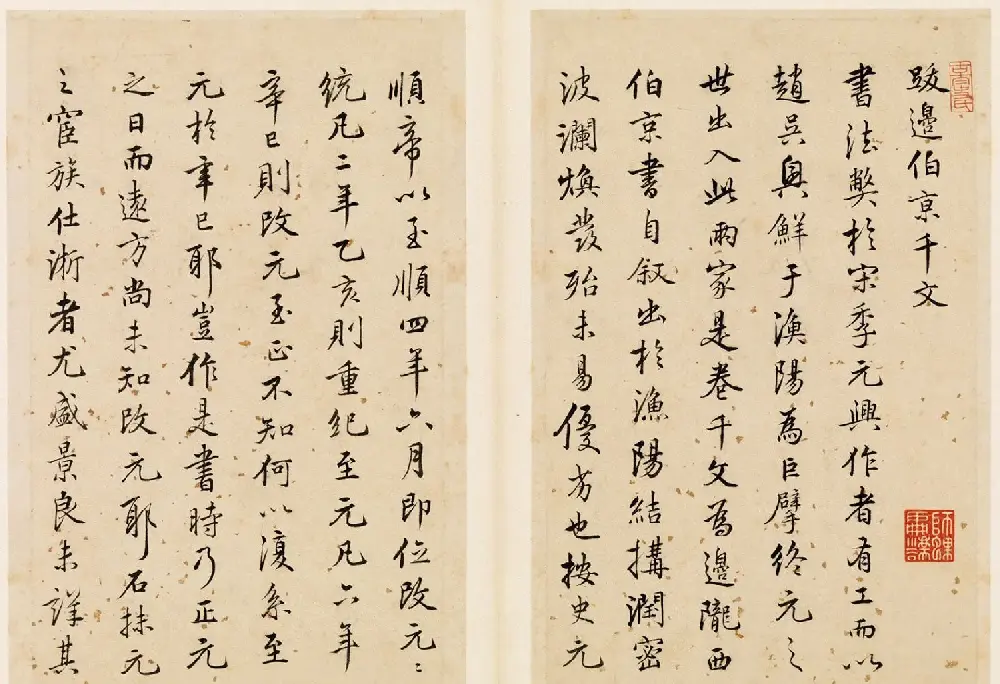 跋邊伯京千文
書法弊於宋季元興作者有工而以
趙吳興鮮于漁陽為巨擘終元之
世出入此兩家是卷千文為邊隴西
伯京書自叙出於漁陽結搆潤密
波瀾煥發殆未易優劣也按史元
順帝以至順四年六月即位改元元
統凡二年乙亥則重紀至元凡六年
辛巳則改元至正不知何以復系至
元於辛巳耶豈作是書時乃正元
之日而遠方尚未知改元耶石抹元
之宦族仕淛者尤盛景良未詳其